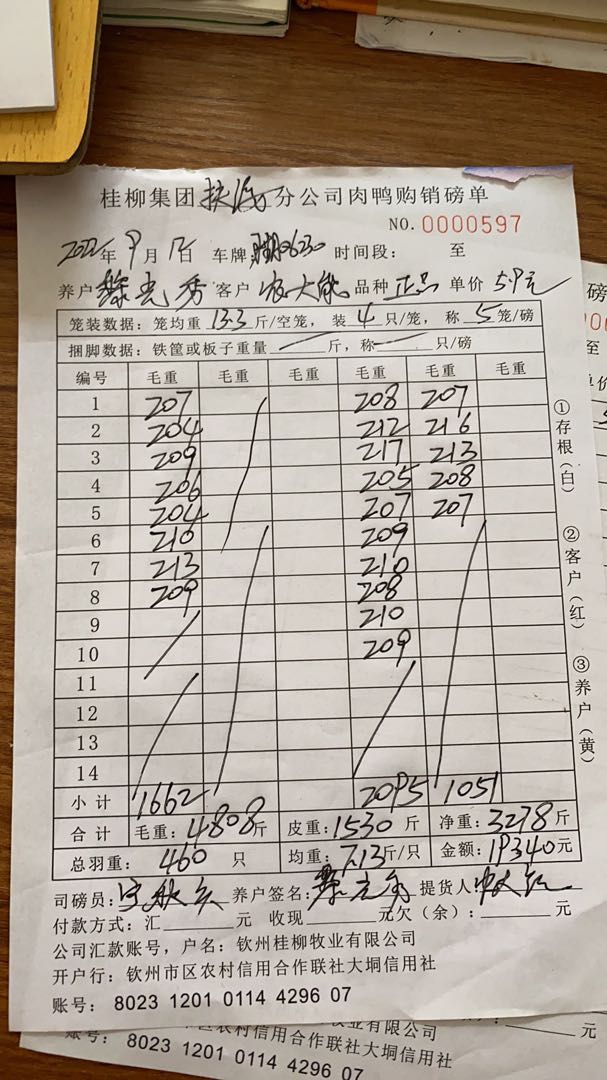 桂柳集团 分公司肉鸭购销磅单
NO. 0000597
2022年9月 日 车牌: 0630 时间段: 至
养户 光秀 客户 大能 品种 正品 单价 5.9元
笼装数据:笼均重 13.3 斤/空笼,装 4 只/笼,称 5 笼/磅
捆脚数据:铁筐或板子重量 斤,称 只/磅
编号 毛重 毛重 毛重 毛重 毛重 毛重
1 207 208 207
2 204 212 216
3 209 217 213
4 206 205 208
5 204 207 207
6 210 209
7 213 210
8 209 208
9 210
10 209
11
12
13
14
小计 1662 2095 1051
合计 毛重:4808斤 皮重:1530斤 净重:3278斤
总羽重: 460 只 均重:7.13斤/只 金额:19340元
司磅员: 养户签名: 光秀 提货人:
付款方式:汇 元 收现 元欠(余): 元
公司汇款账号,户名:钦州桂柳牧业有限公司
开户行:钦州市区农村信用合作联社大垌信用社
账号: 8023 1201 0114 4296 07
①存根(白)
②客户(红)
③养户(黄)
磅
至
单价
有限公司 元
区农村信用合作联社大垌信用社
账号: 8023 1201 0114 4296 07